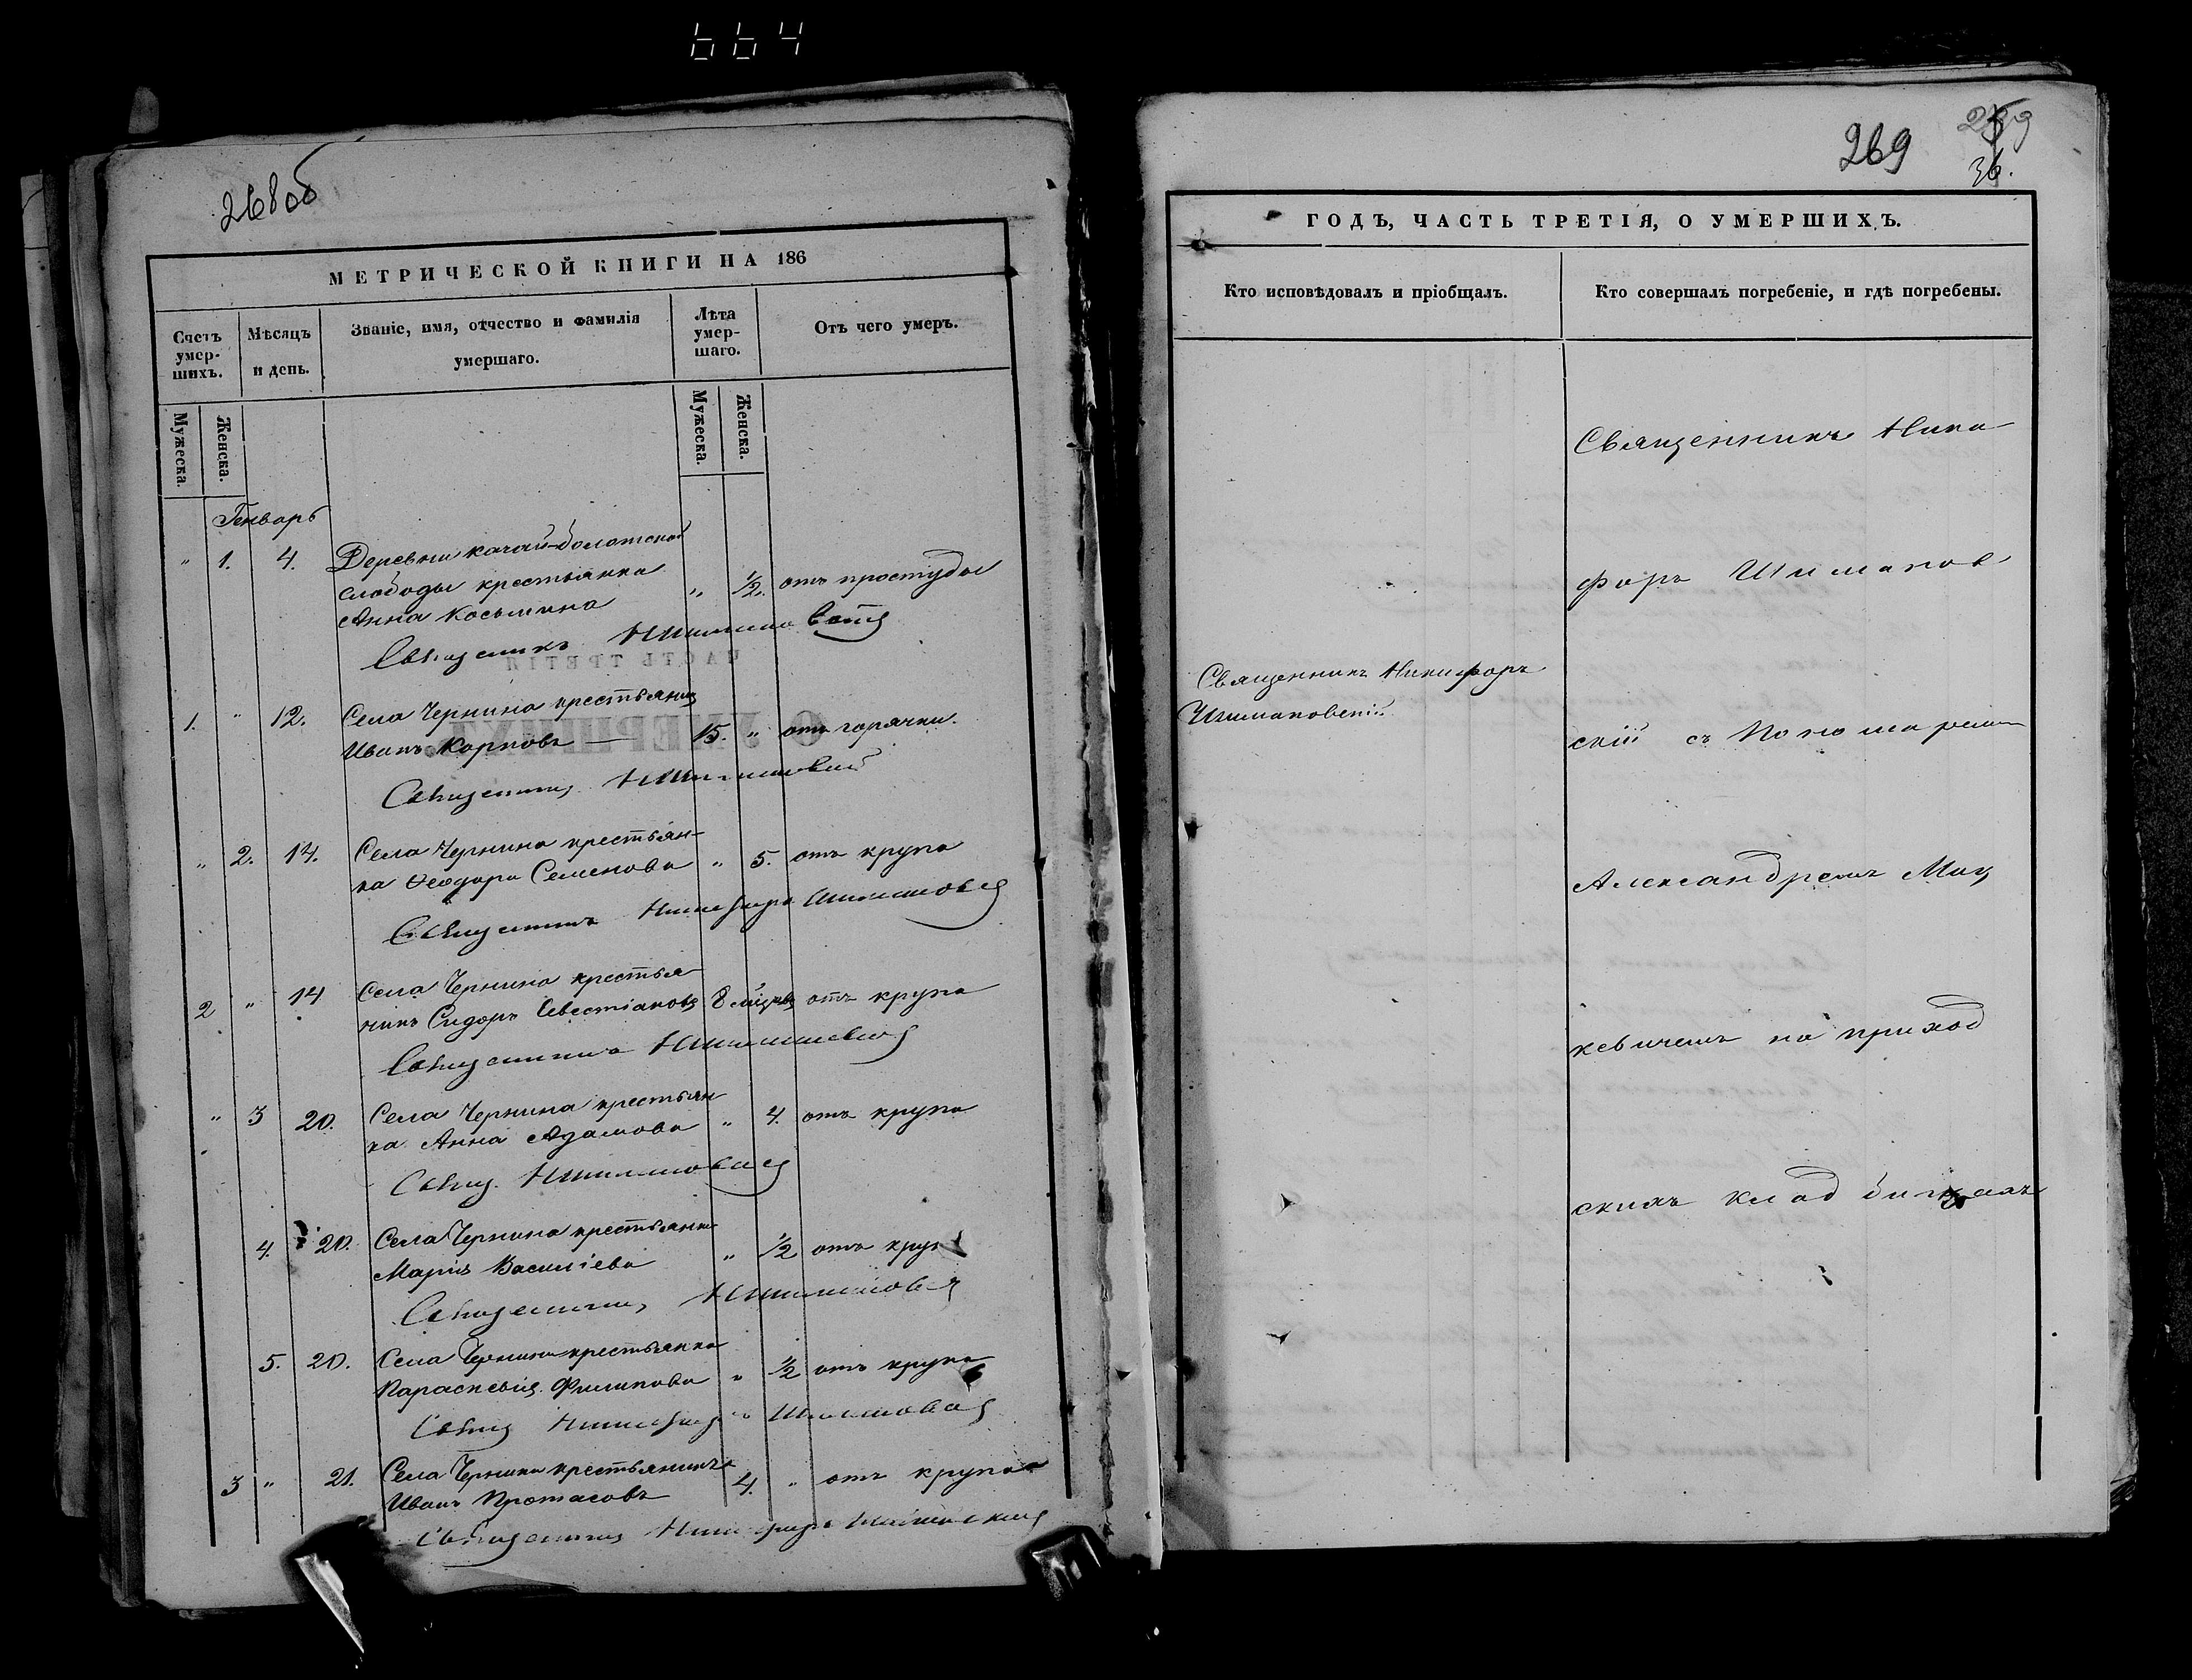 664
268об
МЕТРИЧЕСКОЙ КНИГИ НА 186
Счетъ умер-шихъ.
Мѣсяцъ и день.
Званіе, имя, отчество и фамилія умершаго.
Лѣта умер-шаго.
Отъ чего умеръ.
Мужеска.
Женска.
Мужеска.
Женска.
Генварь
" 1. 4. Деревни
слободы крестьянка " 1/2. отъ простуды
Анна Косьмина
Священникъ
1. " 12. Села Чернина крестьянинъ
Иванъ Карповъ — 15. " отъ горячки.
Священникъ
" 2. 14. Села Чернина крестьян-
ка Ѳеодора Семенова " 5. отъ крупа
Священникъ Никифоръ Шимановскій
2 " 14 Села Чернина крестья-
нинъ Сидоръ Севестіановъ 8 мѣсяцъ отъ крупа
Священникъ
" 3 20. Села Чернина крестьян
ка Анна Адамова " 4. отъ крупа
Свящ.
4. 20. Села Чернина крестьянка
Марія Василіева " 1/2 отъ крупа
Священникъ
5. 20. Села Чернина крестьянка
Параскевія Филипова " 1/2 отъ крупа
Свящ Никифоръ Шимановскій
3 " 21. Села Чернина крестьянинъ
Иванъ Протасовъ 4. " отъ крупа
Священникъ Никифоръ Шимановскій
269
259
36.
ГОДЪ, ЧАСТЬ ТРЕТІЯ, О УМЕРШИХЪ.
Кто исповѣдовалъ и пріобщалъ.
Кто совершалъ погребеніе, и гдѣ погребены.
Священникъ Никифоръ
Шимановскій.
Священникъ Ники-
форъ Шиманов
скій съ Пономаремъ
Александремъ Мац
кевичемъ на приход
скихъ кладбищахъ